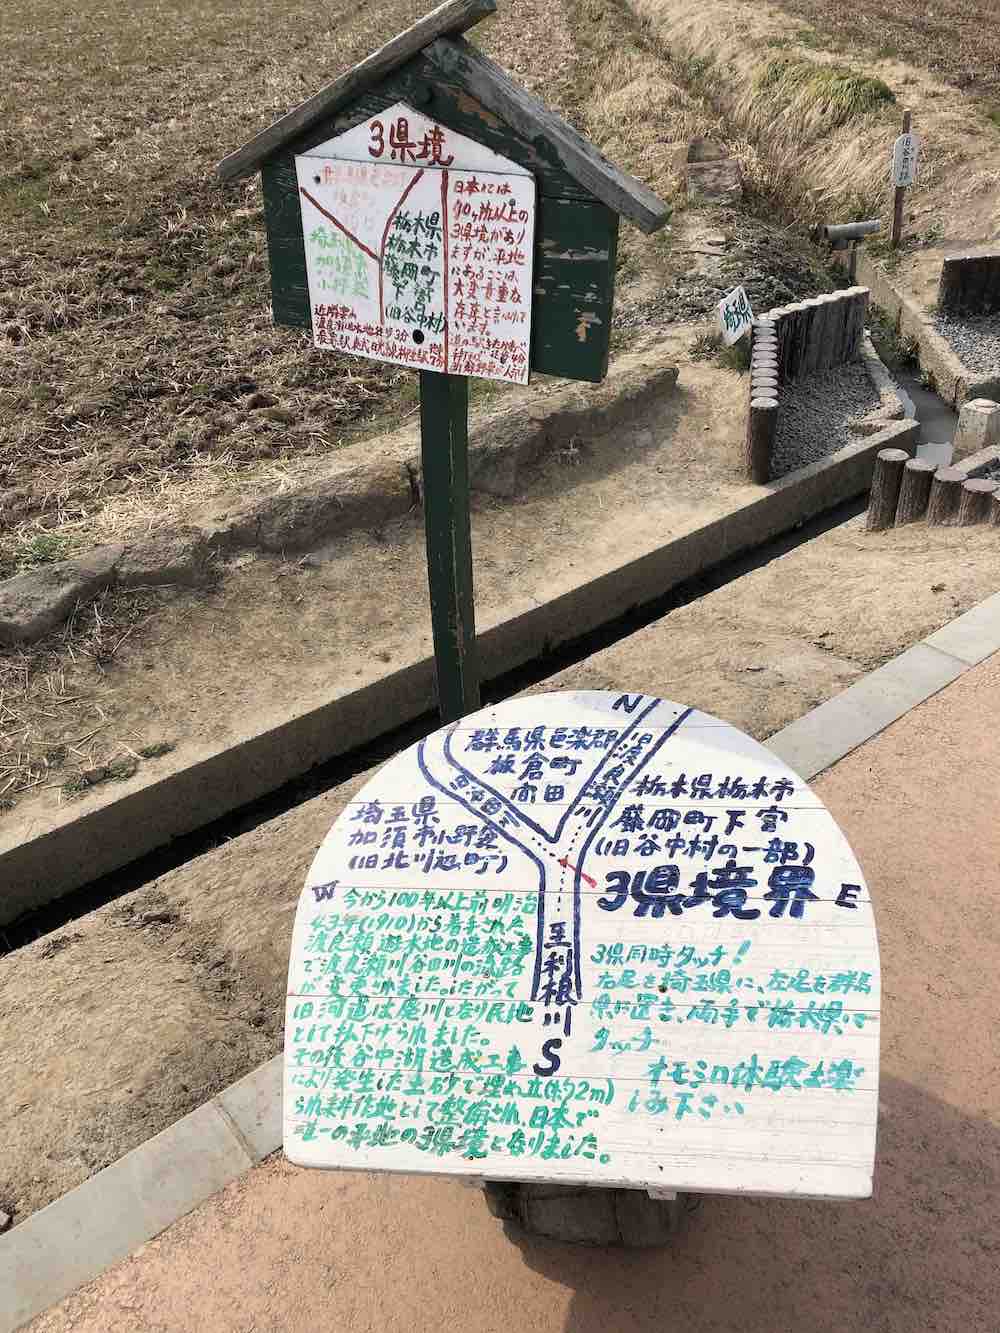 3県境
群馬県邑楽町
埼玉県
加須市
小野袋
栃木県
栃木市
藤岡町
下宮
(旧谷中村)
日本には
40ヶ所以上の
3県境があり
ますが、平地
にあるここは、
大変貴重な
存在と言われて
います。
旧谷田川跡
埼玉県
N
群馬県邑楽郡
板倉町
向田
旧渡良瀬川
旧谷田川
栃木県栃木市
藤岡町下宮
(旧谷中村の一部)
埼玉県
加須市小野袋
(旧北川辺町)
3県境界
W
E
今から100年以上前明治
43年(1910)から着手された
渡良瀬遊水地の造成工事
で渡良瀬川谷田川の流路
が変更されました。したがって
旧河道は廃川となり民地
として払下げられました。
その後谷中湖造成工事
により発生した土砂で埋め立(約2m)
られ耕作地として整備され、日本で
唯一の平地の3県境となりました。
至利根川
S
3県同時タッチ!
右足を埼玉県に、左足を群馬
県に置き、両手で栃木県に
タッチ
オモシロ体験お楽
しみ下さい